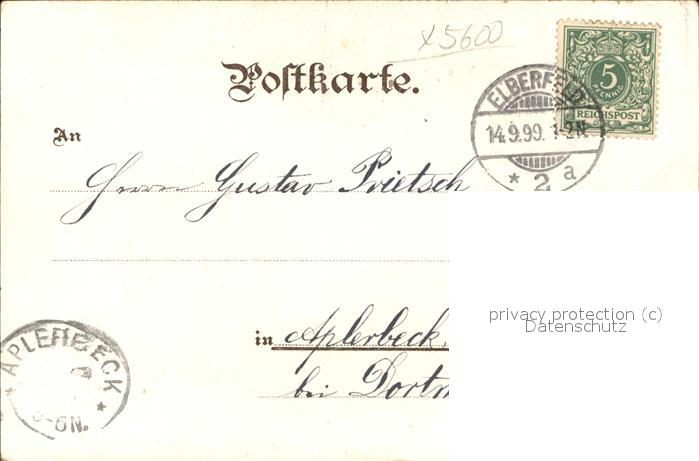 x5600
Postkarte.
5
PFENNIG
REICHSPOST
ELBERFELD
14.9.99. 1-2N.
* 2 a
An
Herrn Gustav Prietsch
privacy protection (c)
Datenschutz
in Aplerbeck,
bei Dortm
APLERBECK
-6N. *